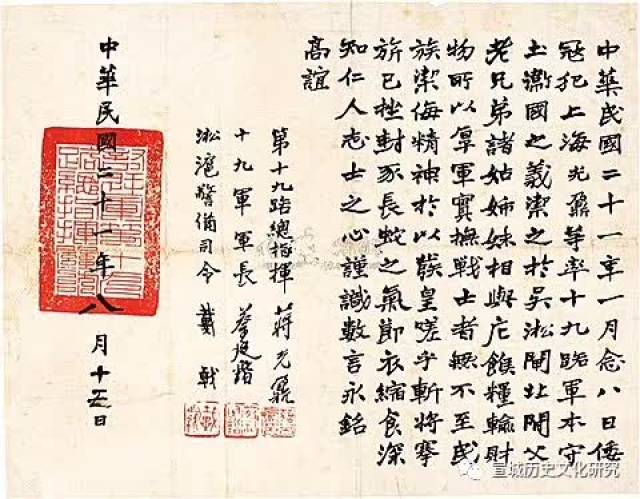 中華民國二十一年一月念八日倭
寇犯上海光鼐等率十九路軍本守
土衛國之義禦之於吳淞閘北間父
老兄弟諸姑姊妹相與庀餱糧輸財
物所以厚軍實撫戰士者無不至民
族禦侮精神於以發皇嗟乎斬將搴
旂已挫封豕長蛇之氣節衣縮食深
知仁人志士之心謹識數言永銘
高誼
第十九路總指揮 蔣光鼐
十九軍軍長 蔡廷鍇
淞滬警備司令 戴戟
中華民國二十一年八月十五日
宣城历史文化研究